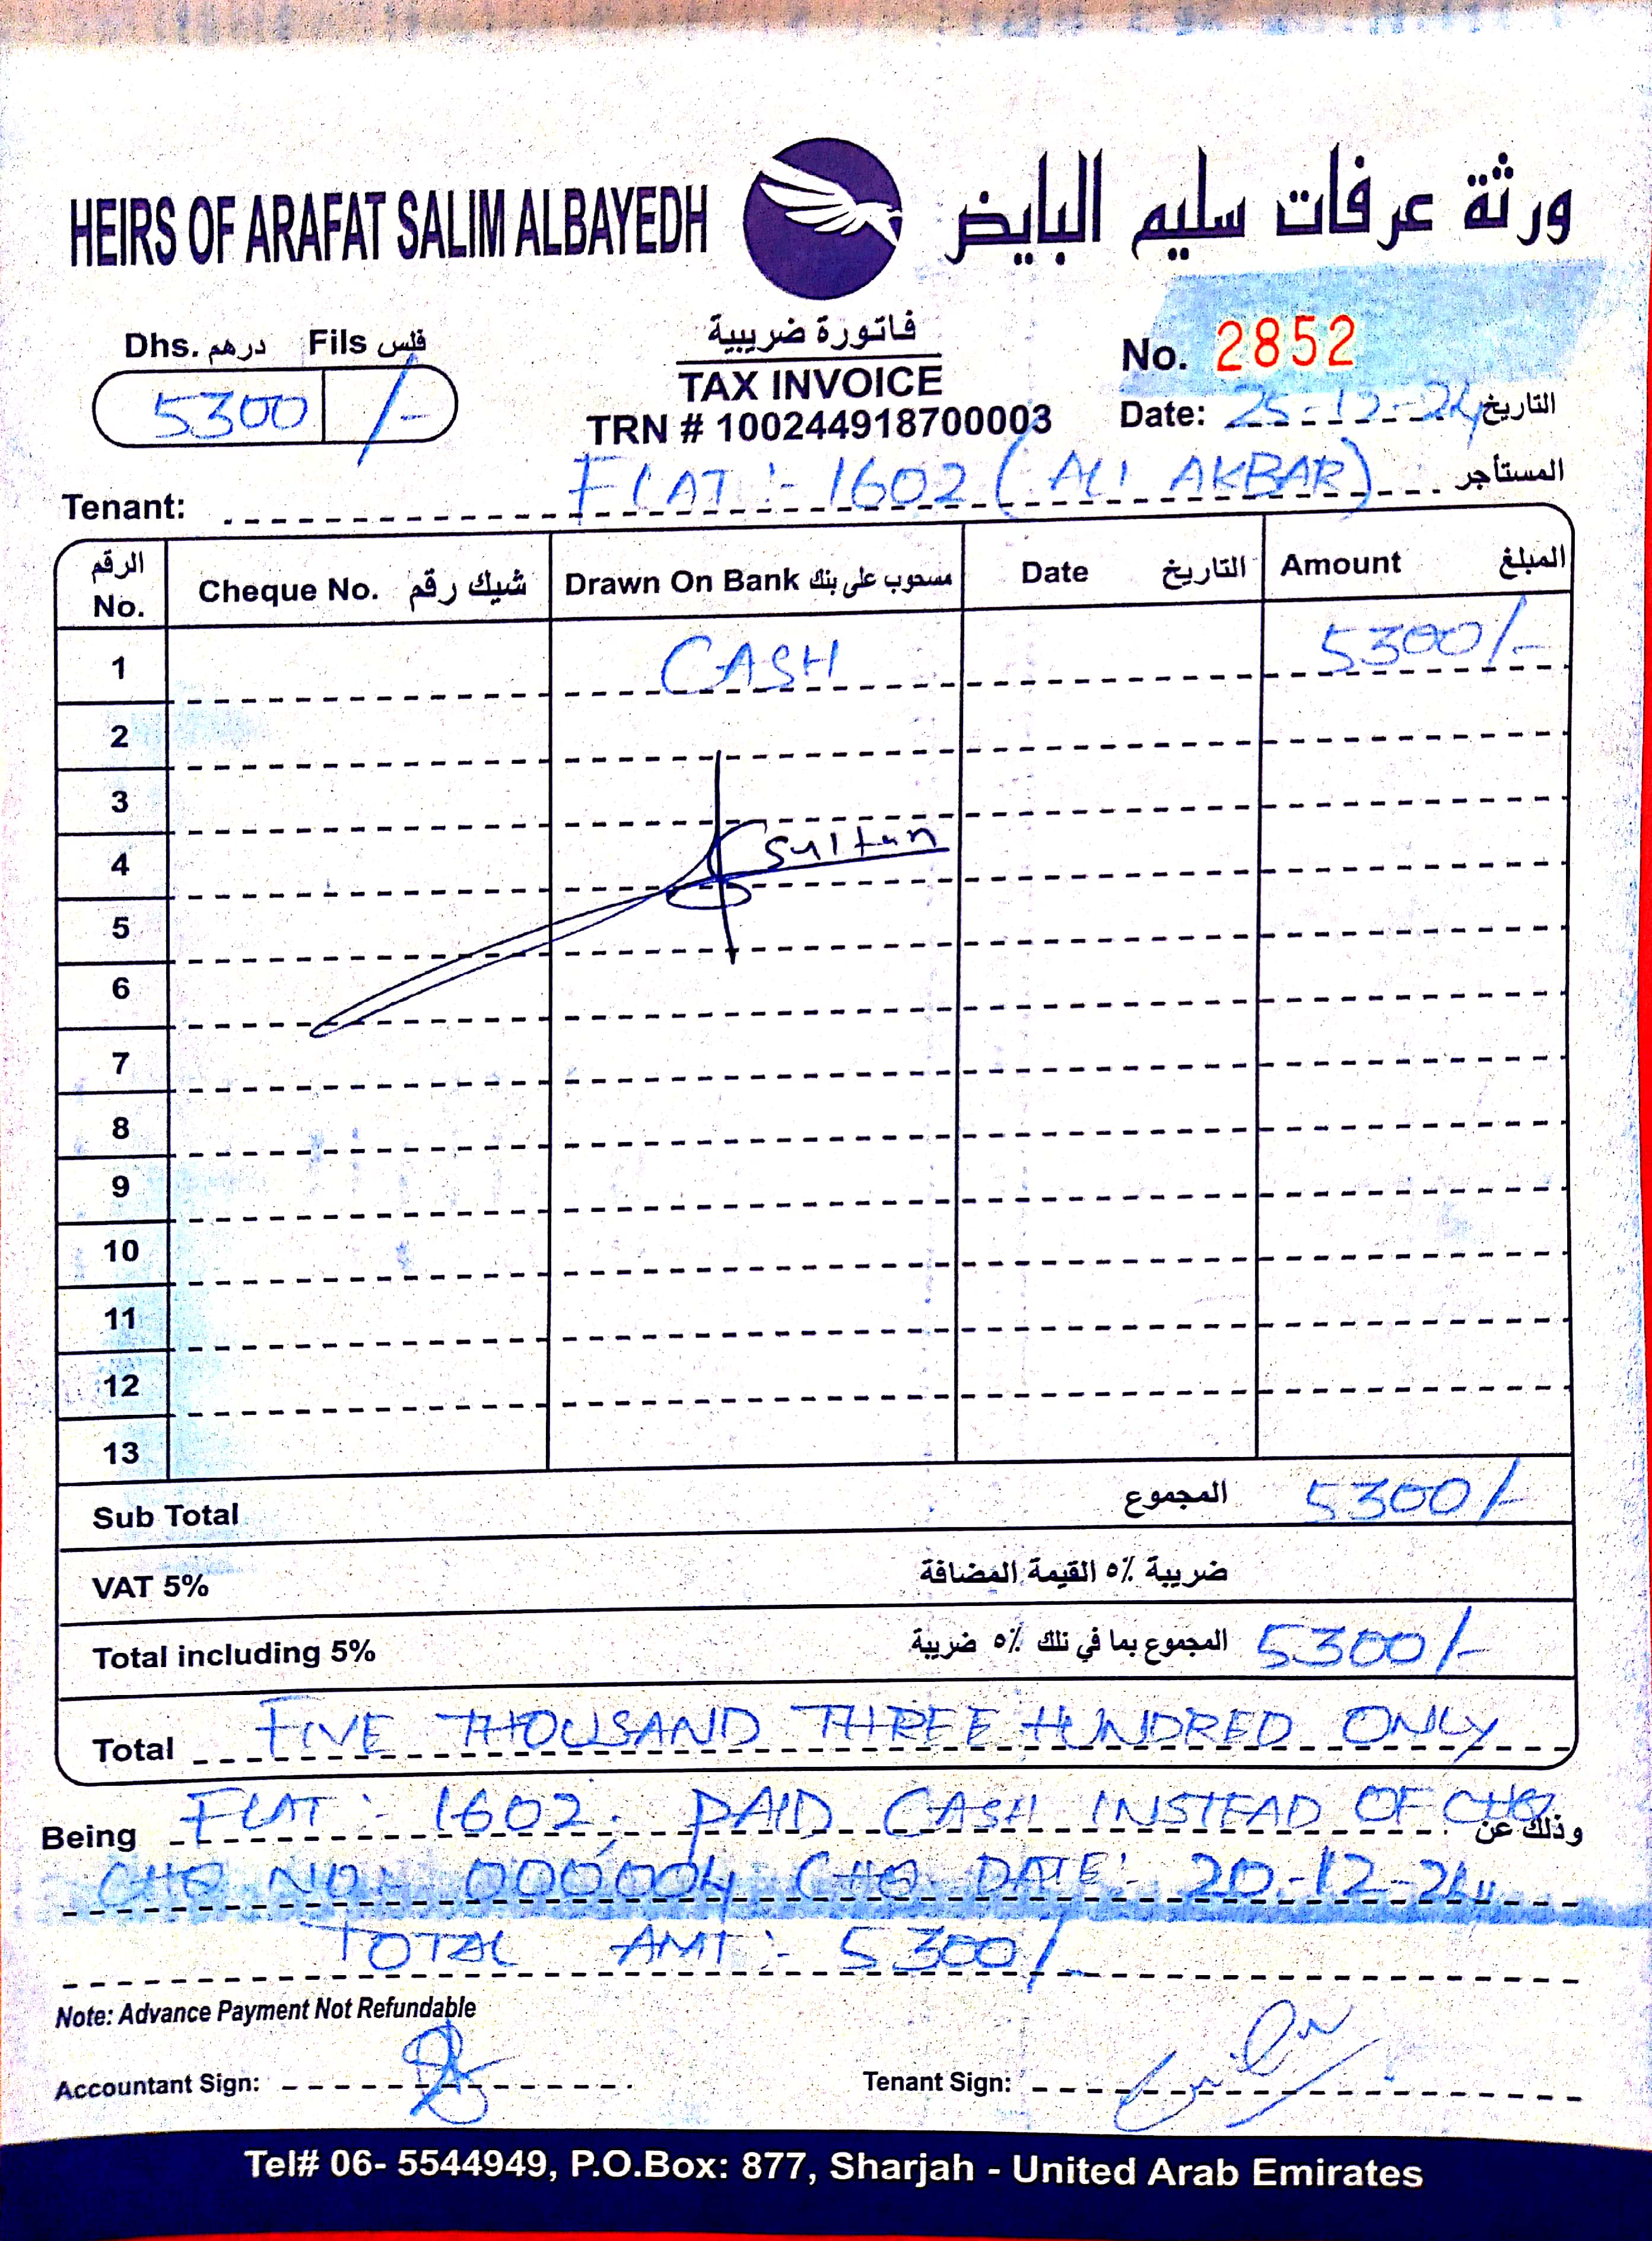 HEIRS OF ARAFAT SALIM ALBAYEDH ورثة عرفات سليم البايض
Dhs. درهم Fils فلس
5300 /-
فاتورة ضريبية
TAX INVOICE
TRN # 100244918700003
No. 2852
Date: 25-12-24 التاريخ
Tenant: FLAT:- 1602 (ALI AKBAR) المستأجر
الرقم No. Cheque No. شيك رقم Drawn On Bank مسحوب على بنك Date التاريخ Amount المبلغ
1 CASH 5300/-
2
3
4 Sultan
5
6
7
8
9
10
11
12
13
Sub Total المجموع 5300/-
VAT 5% ضريبة ٥٪ القيمة المضافة
Total including 5% المجموع بما في تلك ٥٪ ضريبة 5300/-
Total FIVE THOUSAND THREE HUNDRED ONLY
Being FLAT:- 1602, PAID CASH INSTEAD OF CHQ وذلك عن
CHQ NO:- 000004 CHQ DATE:- 20-12-24
TOTAL AMT:- 5300/-
Note: Advance Payment Not Refundable
Accountant Sign: Tenant Sign:
Tel# 06- 5544949, P.O.Box: 877, Sharjah - United Arab Emirates